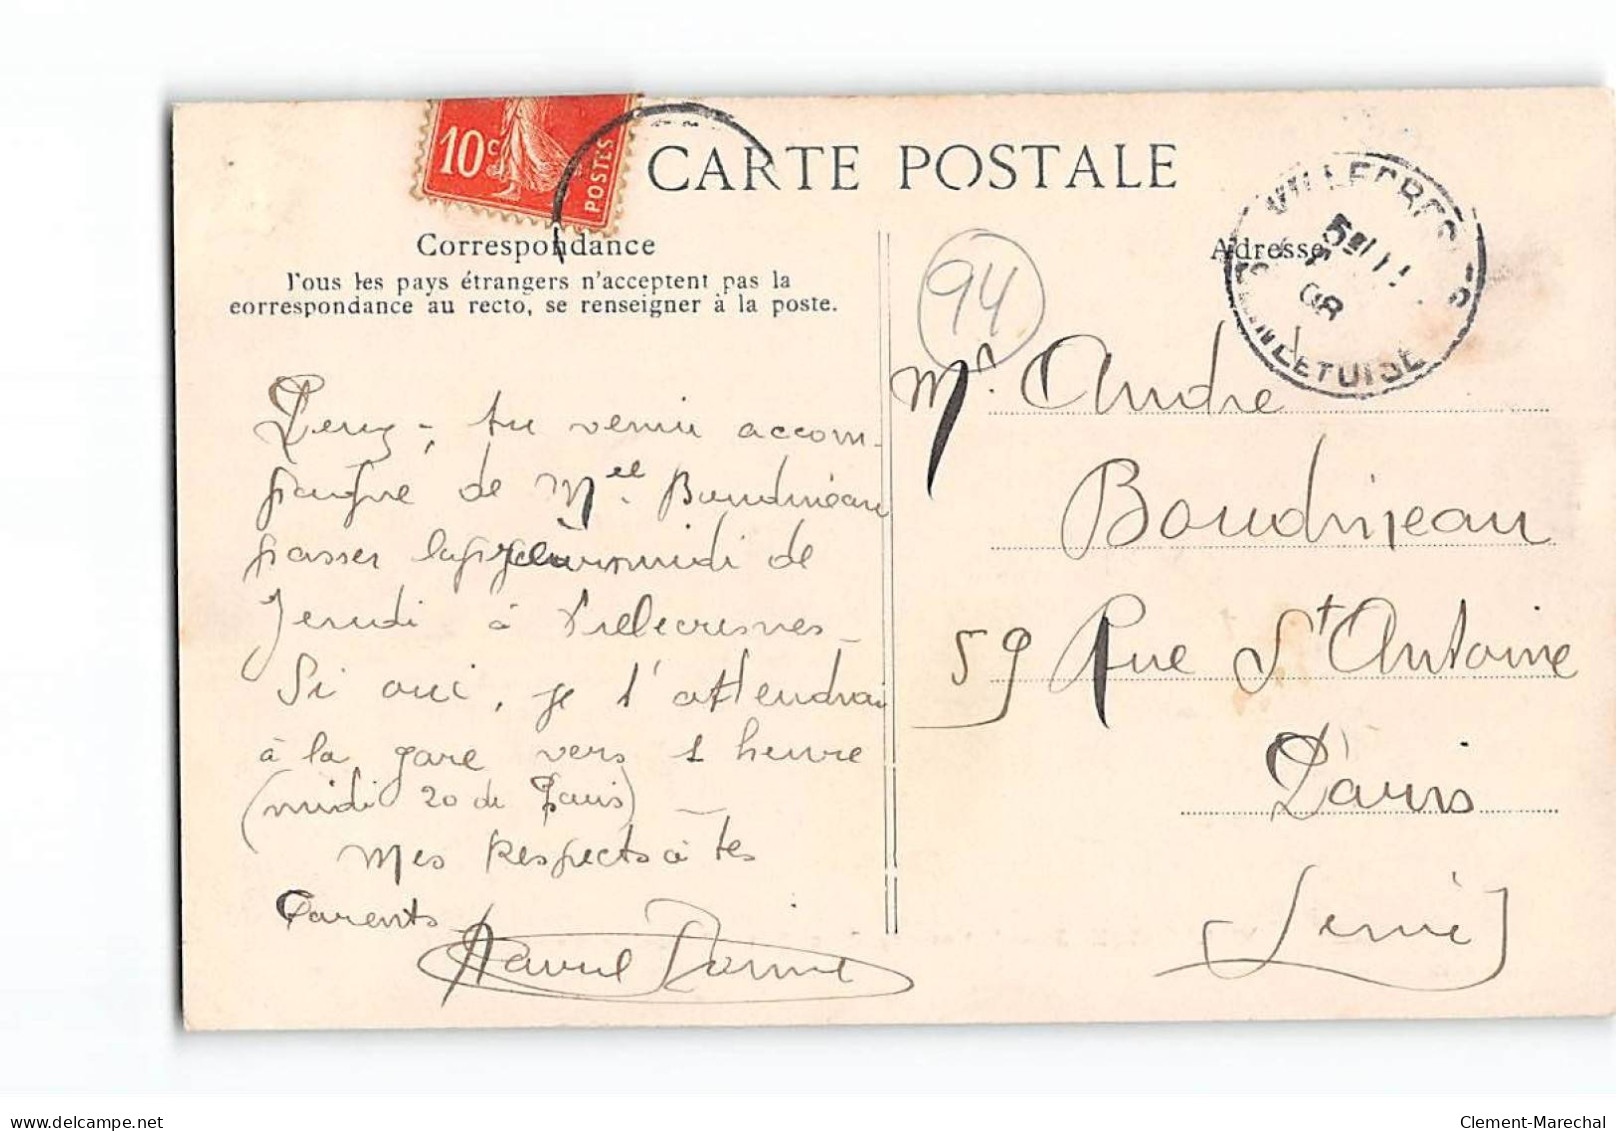 10c
POSTES
CARTE POSTALE
Correspondance
Tous les pays étrangers n'acceptent pas la
correspondance au recto, se renseigner à la poste.
Adresse
5
08
SEINE ET OISE
94
Peux-tu venir accom-
pagné de Mell. Boudineau
passer midi de
Jeudi à Villecresnes -
Si oui, je t'attendrai
à la gare vers 1 heure
(midi 20 de Paris) -
Mes Respects à tes
Parents
Raoul
Mr. André
Boudineau
59 Rue St Antoine
Paris
delcampe.net
Clement-Marechal